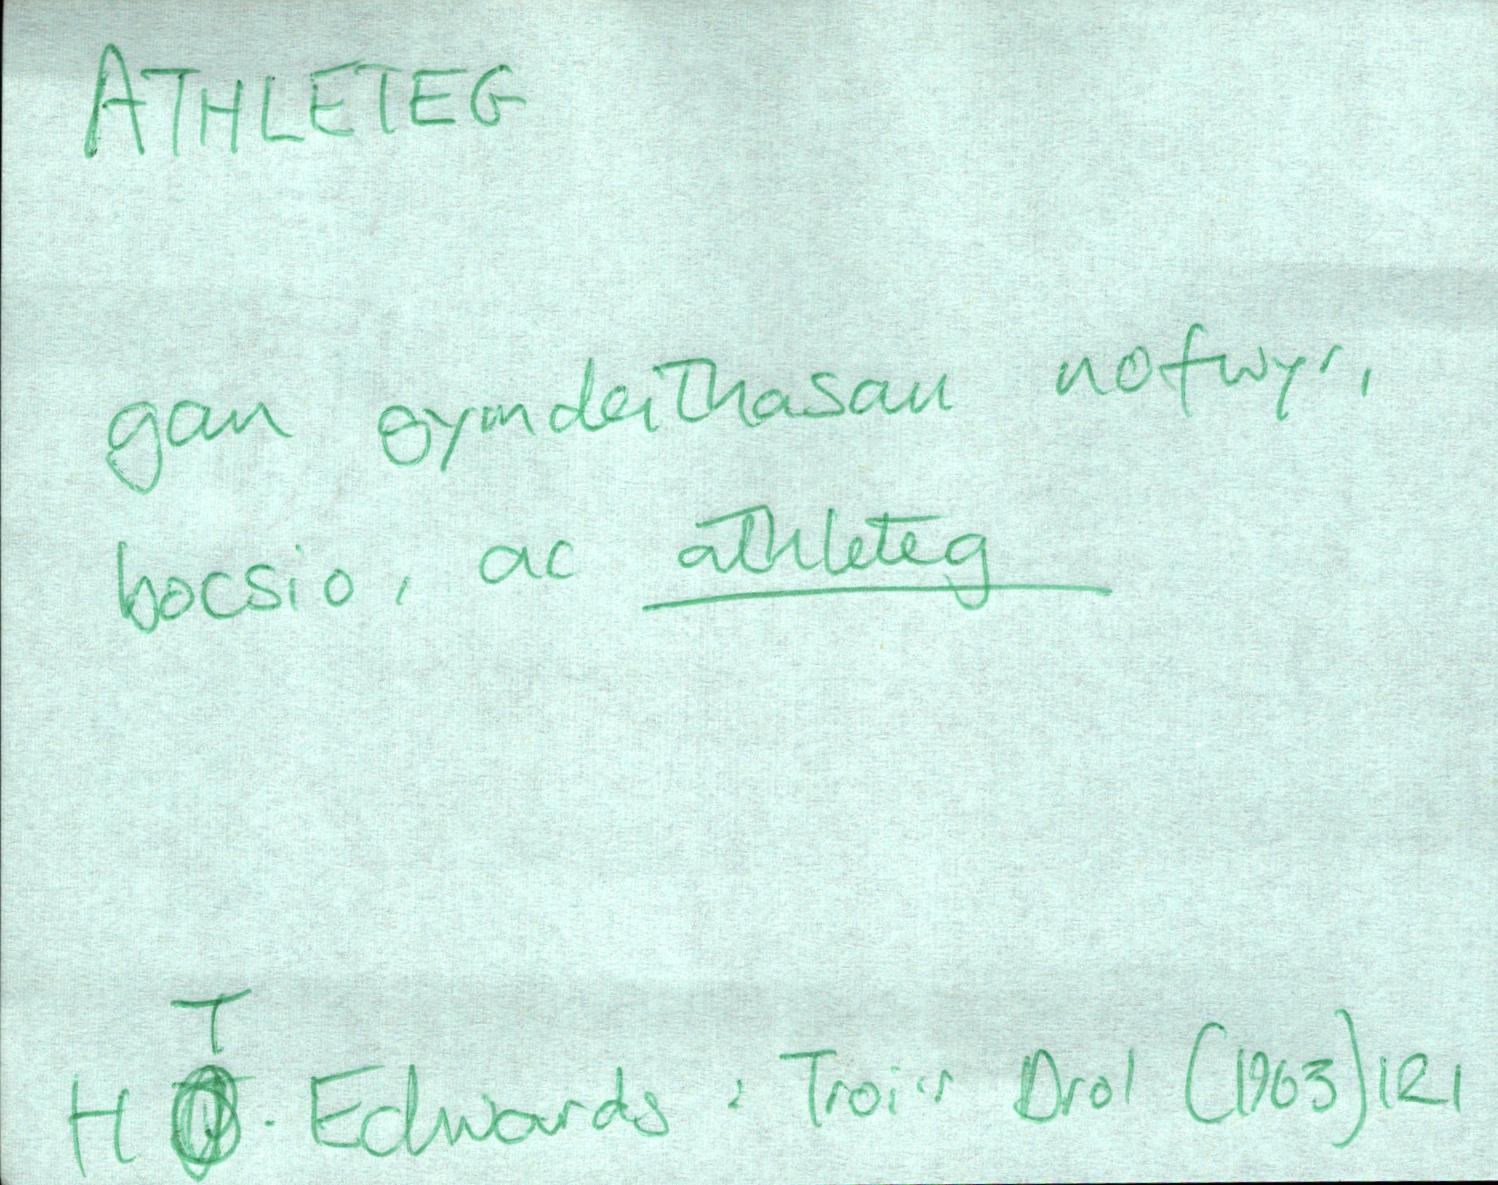 ATHLETEG
gan gymdeithasau nofwyr,
bocsio, ac athleteg
T
H . Edwards : Troi'r Drol (1963) 121